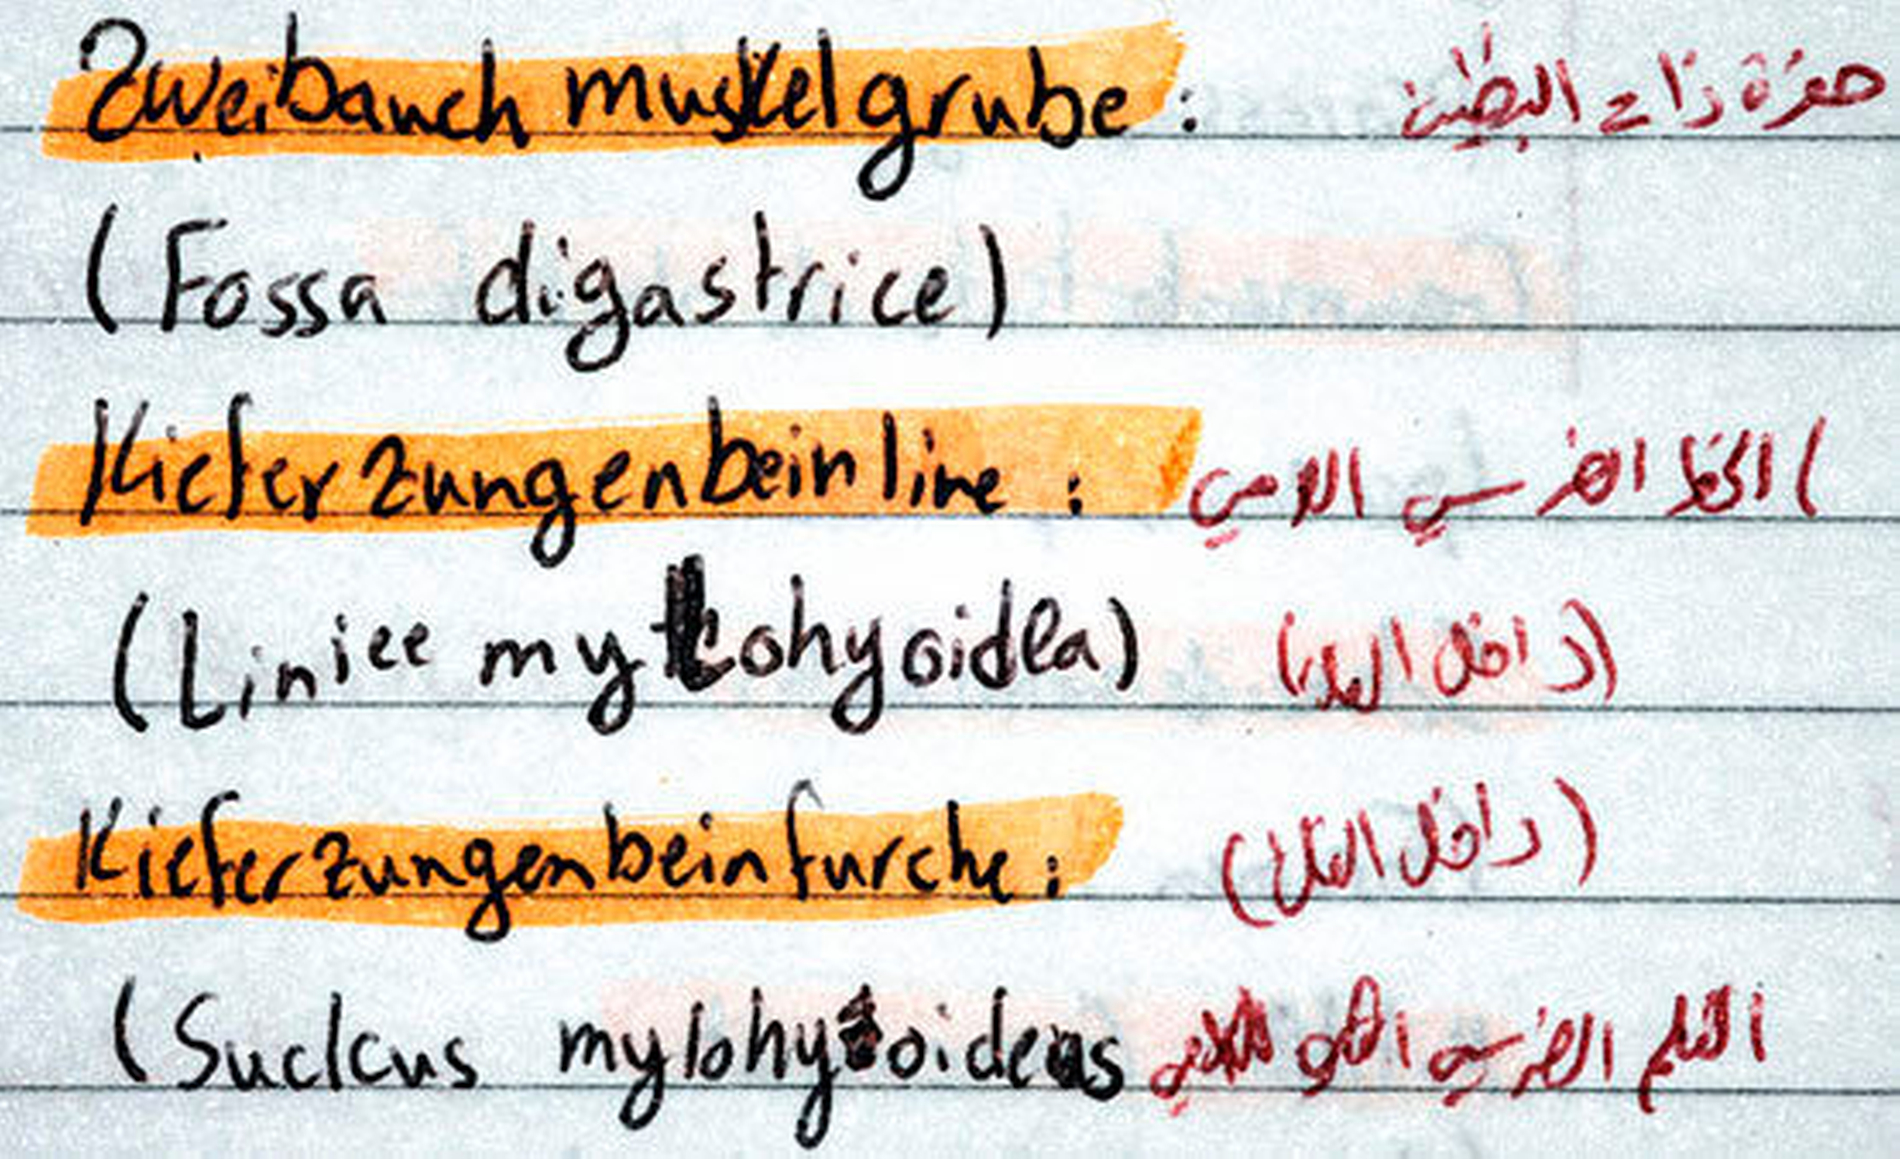 Zweibauch muskelgrube : حفرة ذات البطنين
(Fossa digastrice)
Kiefer zungenbein line : الخط الضرسي اللامي (
(Liniee mylohyoidea) (داخل
Kieferzungenbein furche : (داخل
(Suclcus mylohyoideus التلم الضرسي